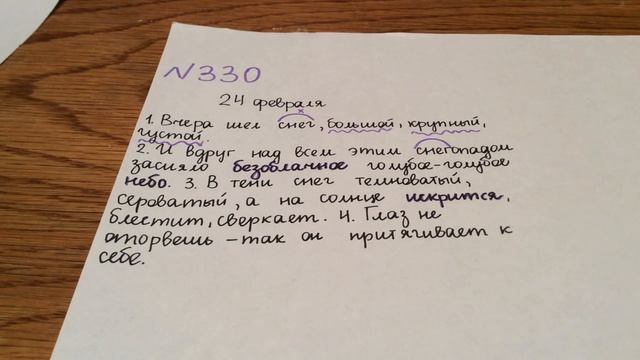 N330
24 февраля
1. Вчера шел снег, большой, крупный,
густой.
2. И вдруг над всем этим снегопадом
засияло безоблачное голубое-голубое
небо. 3. В тени снег темноватый,
сероватый, а на солнце искрится,
блестит, сверкает. 4. Глаз не
оторвешь – так он притягивает к
себе.